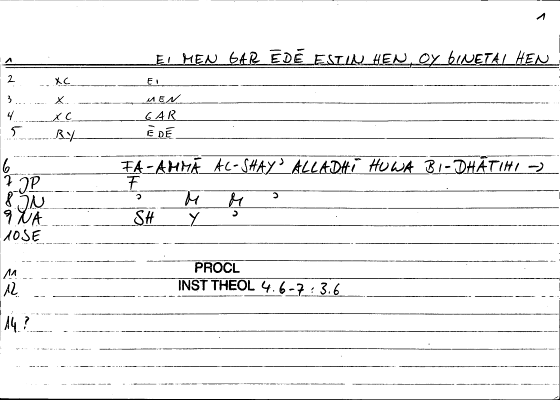 1
1 EI MEN GAR ĒDĒ ESTIN HEN, OY GINETAI HEN
2 XC EI
3 X MEN
4 XC GAR
5 RY ĒDĒ
6 FA-AMMĀ AL-SHAYʾ ALLADHĪ HUWA BI-DHĀTIHI →
7 JP F
8 JN ʾ M M ʾ
9 NA SH Y ʾ
10 SE
11 PROCL
12 INST THEOL 4.6-7 : 3.6
14 ?